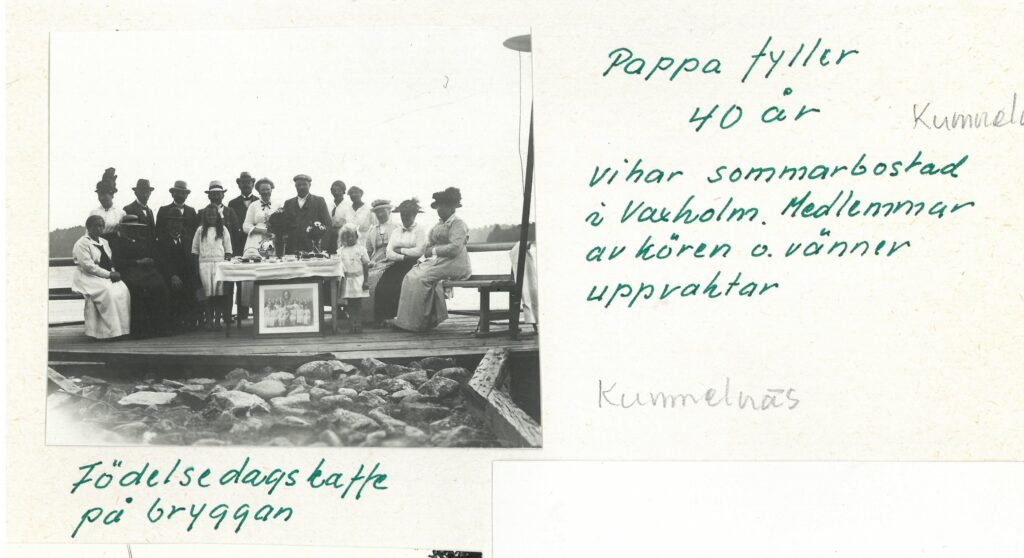 Pappa fyller
40 år
vi har sommarbostad
i Vaxholm. Medlemmar
av kören o. vänner
uppvaktar
Kummelnäs
Födelsedagskaffe
på bryggan